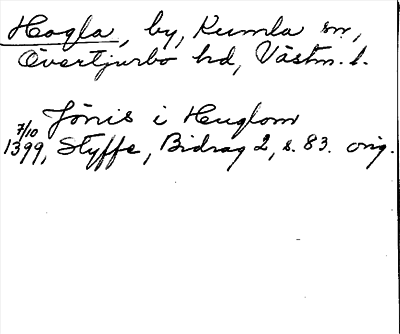 Hagla, by, Kumla sn,
Övertjurbo hd, Västm. l.
Jönis i Huglom
7/10
1399, Styffe, Bidrag 2, s. 83. orig.